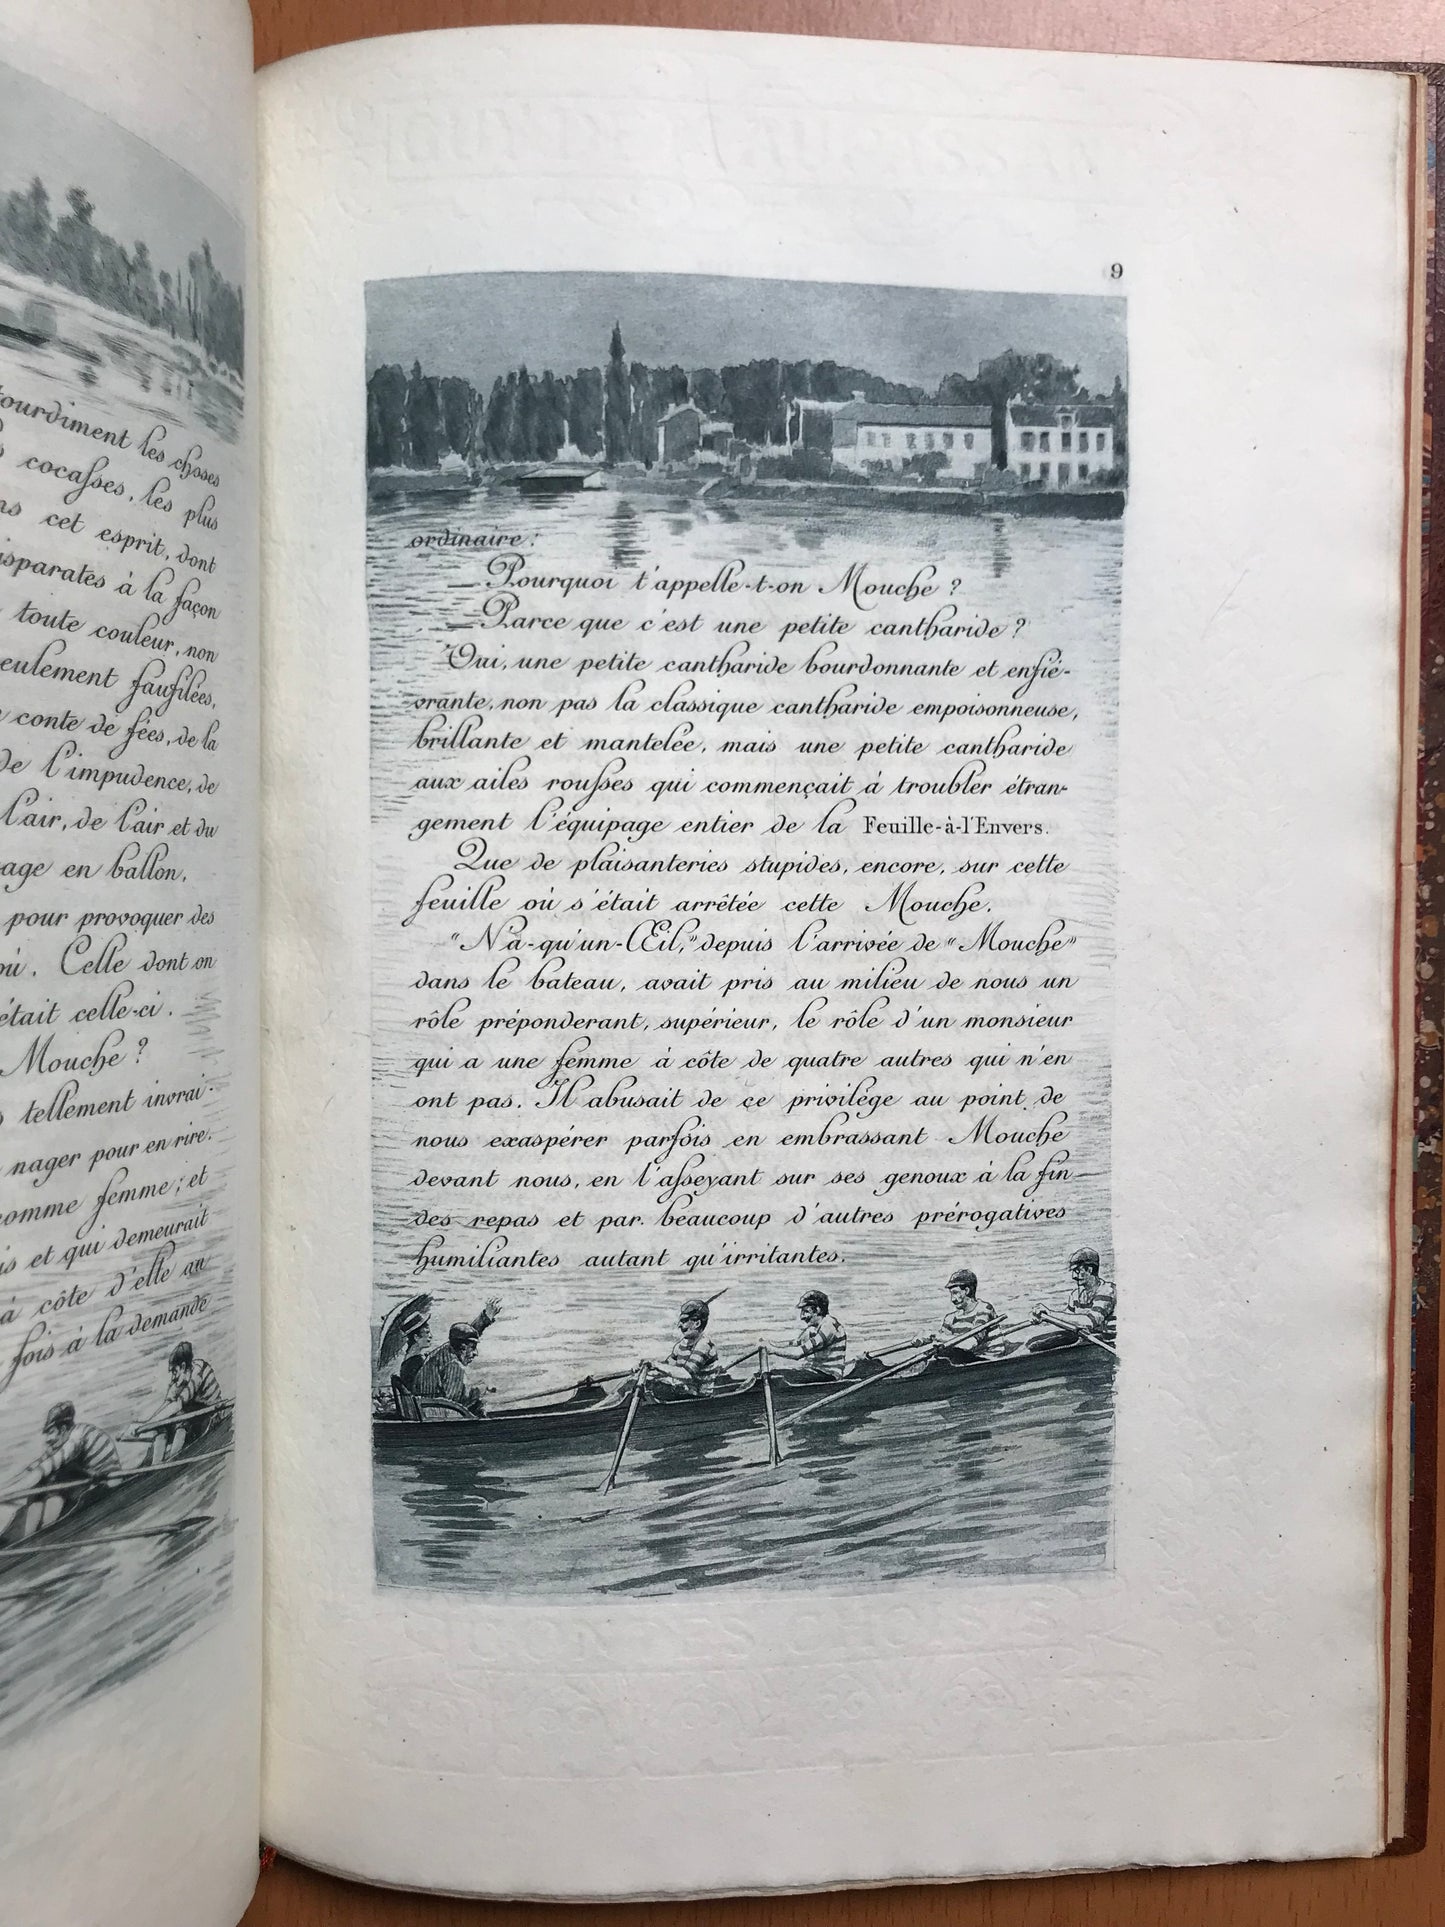 tourdiment les choses
cocasses, les plus
cet esprit, dont
à la façon
toute couleur, non
faufilées,
conte de fées, de la
de l'impudence, de
l'air, de l'air et du
en ballon.
pour provoquer des
Celle dont on
était celle-ci.
Mouche ?
tellement invrai-
nager pour en rire.
comme femme ; et
et qui demeurait
à côte d'elle au
fois à la demande
9
ordinaire :
— Pourquoi t'appelle-t-on Mouche ?
— Parce que c'est une petite cantharide ?
Oui, une petite cantharide bourdonnante et enfié-
vrante, non pas la classique cantharide empoisonneuse,
brillante et mantelée, mais une petite cantharide
aux ailes rousses qui commençait à troubler étran-
gement l'équipage entier de la Feuille-à-l'Envers.
Que de plaisanteries stupides, encore, sur cette
feuille où s'était arrêtée cette Mouche.
"N'a-qu'un-Œil," depuis l'arrivée de "Mouche"
dans le bateau, avait pris au milieu de nous un
rôle prépondérant, supérieur, le rôle d'un monsieur
qui a une femme à côte de quatre autres qui n'en
ont pas. Il abusait de ce privilège au point de
nous exaspérer parfois en embrassant Mouche
devant nous, en l'asseyant sur ses genoux à la fin
des repas et par beaucoup d'autres prérogatives
humiliantes autant qu'irritantes.